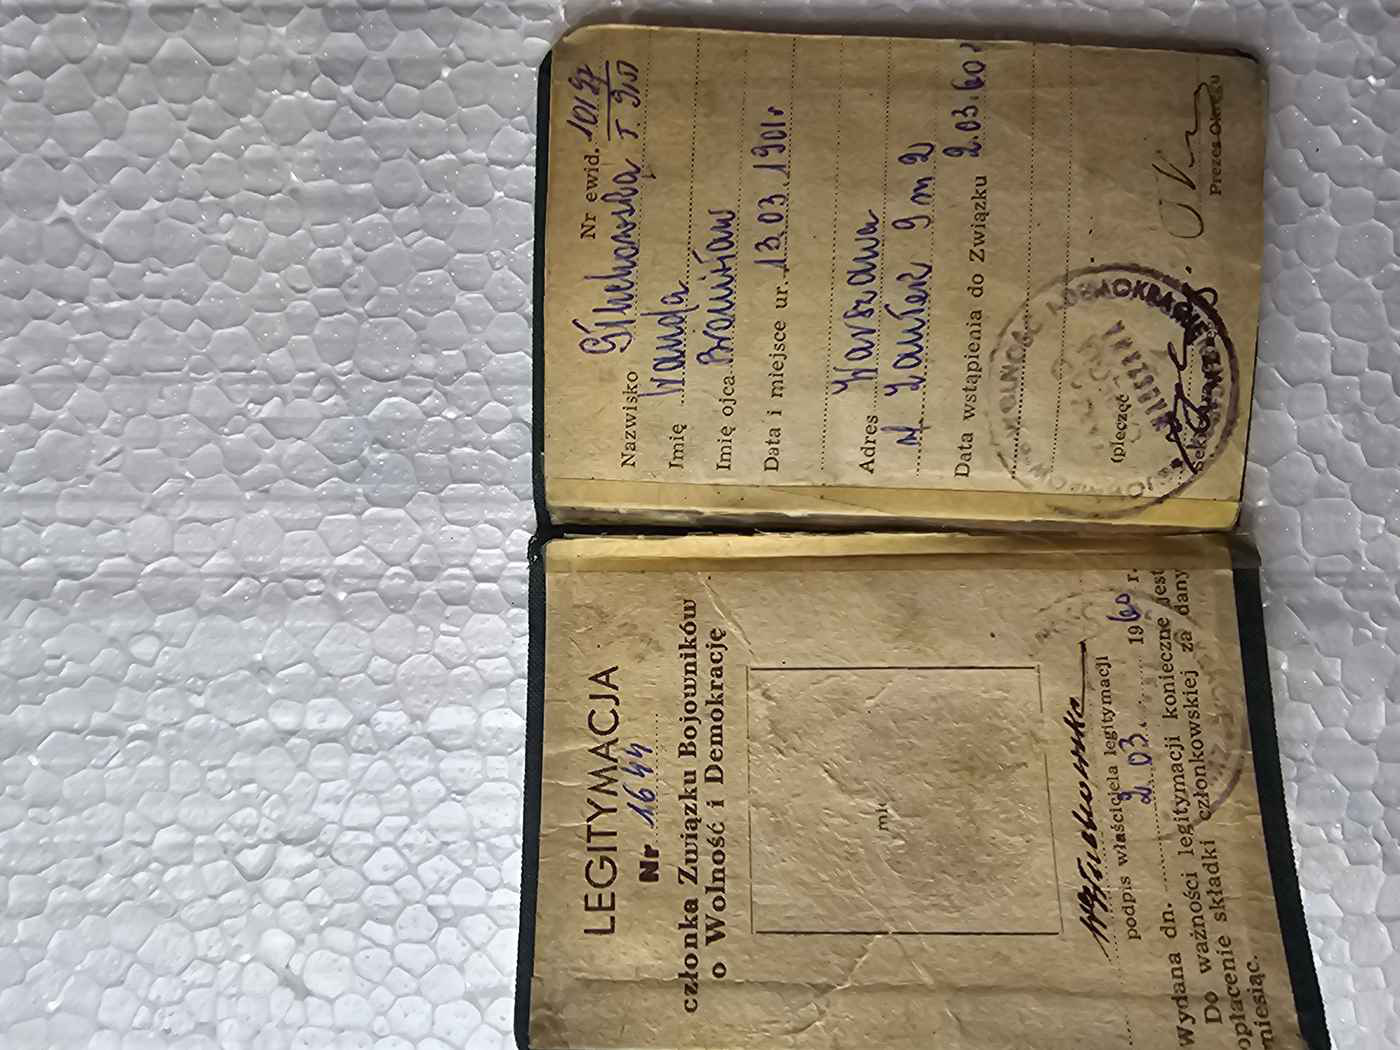 LEGITYMACJA
Nr 1644
członka Związku Bojowników
o Wolność i Demokrację
podpis właściciela legitymacji
Wydana dn. 2.03. 1960 r.
Do ważności legitymacji konieczne jest
opłacenie składki członkowskiej za dany
miesiąc.
Nr ewid.
Nazwisko
Imię Wanda
Imię ojca Bronisław
Data i miejsce ur. 13.03.1901r
Adres Warszawa
9 m 2
Data wstąpienia do Związku 2.03.60r
(pieczęć
Prezes Okręgu